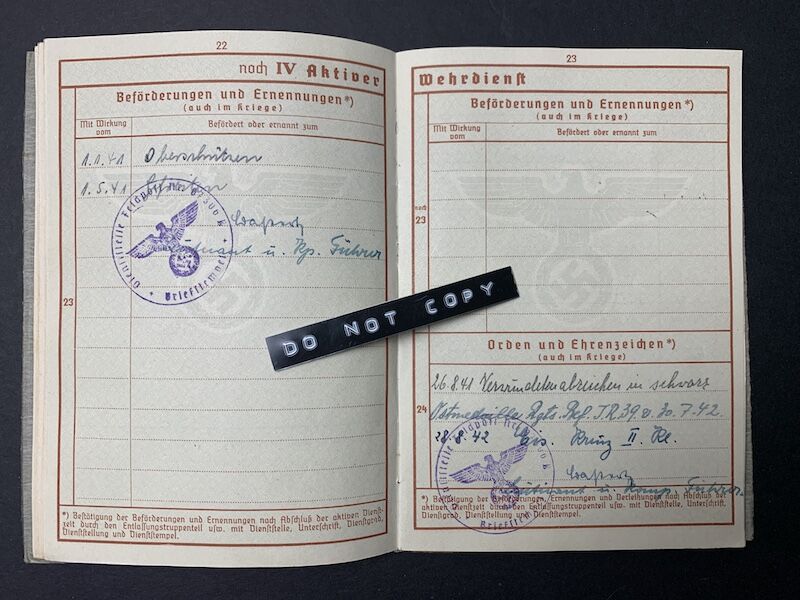 22
noch IV Aktiver
Beförderungen und Ernennungen*)
(auch im Kriege)
Mit Wirkung vom
Befördert oder ernannt zum
1.1.41 Oberschützen
1.5.41 Gefreiten
Leutnant u. Kp. Führer
Dienststelle Feldpost Nr.
Briefstempel
23
DO NOT COPY
*) Bestätigung der Beförderungen und Ernennungen nach Abschluß der aktiven Dienst-
zeit durch den Entlassungstruppenteil usw. mit Dienststelle, Unterschrift, Dienstgrad,
Dienststellung und Dienststempel.
23
Wehrdienst
Beförderungen und Ernennungen*)
(auch im Kriege)
Mit Wirkung vom
Befördert oder ernannt zum
noch
23
Orden und Ehrenzeichen*)
(auch im Kriege)
26.8.41 Verwundetenabzeichen in schwarz
24
Ostmedaille Rgts. Bef. I.R.39 v. 30.7.42.
28.8.42 Kreuz II. Kl.
Leutnant u. Komp. Führer
Dienststelle Feldpost
Briefstempel
*) Bestätigung der Beförderungen, Ernennungen und Verleihungen nach Abschluß der
aktiven Dienstzeit durch den Entlassungstruppenteil usw. mit Dienststelle, Unterschrift,
Dienstgrad, Dienststellung und Dienststempel.